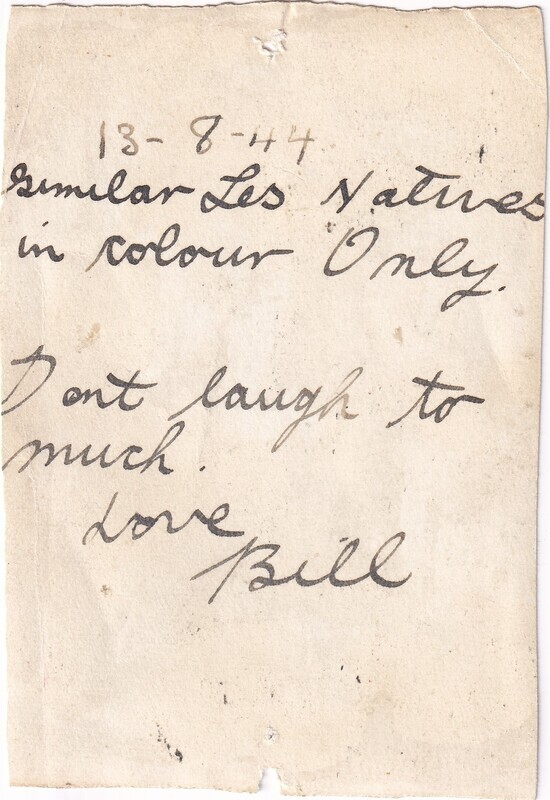 13-8-44
Similar Les Natives
in colour Only.
Dont laugh to
much.
Love
Bill